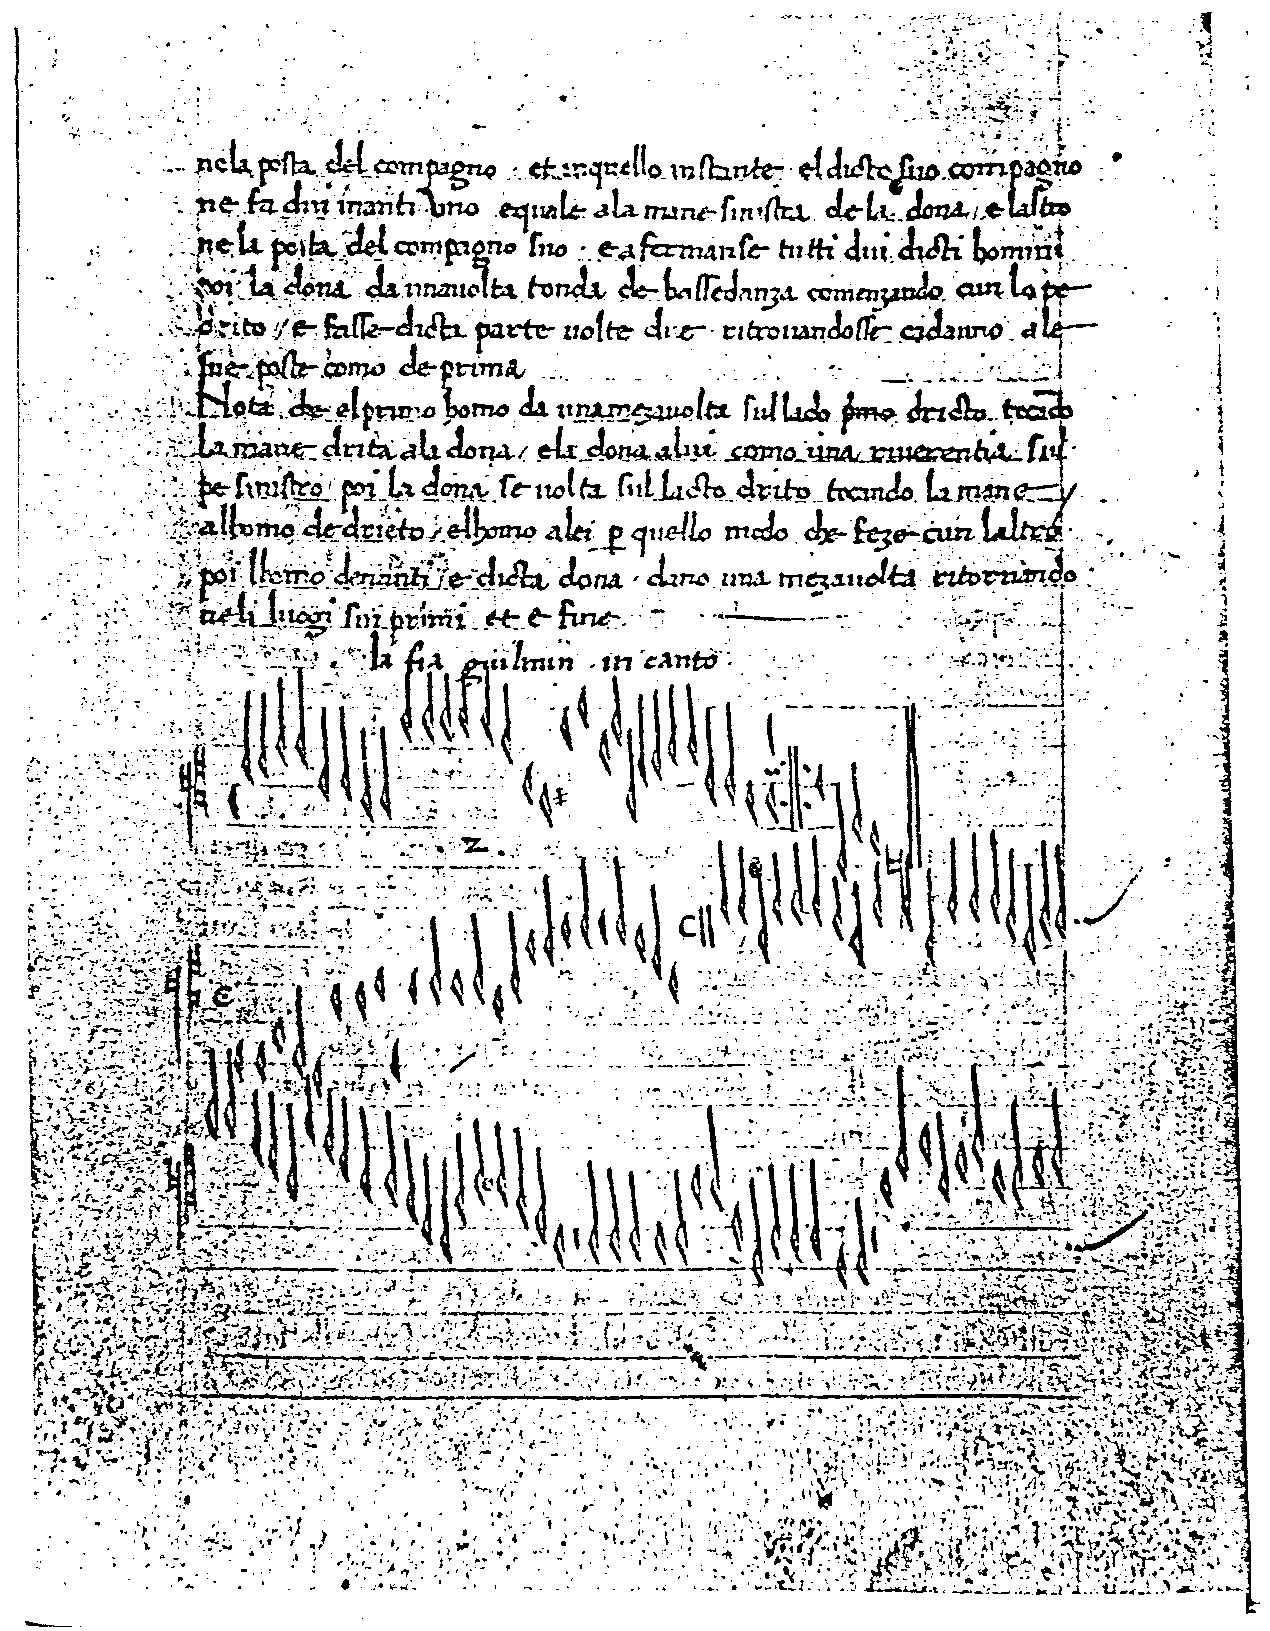 nela posta del compagno · et inquello instante el dicto suo compagno
ne fa dui inanti uno equale ala mane sinistra de la dona / e laltro
nela posta del compagno suo · e afermanse tutti dui dicti homini
poi la dona da unauolta tonda de bassedanza comenzando cun lo pe
drito / e fasse dicta parte uolte due ritrouandosse cadauno ale
sue poste como de prima
Nota che elprimo homo da unamezauolta sul lado dricto tocãdo
la mane drita ala dona / ela dona alui como una riuerentia sul
pe sinistro / poi la dona se uolta sul lacto drito tocando la mane
alhomo dedrieto / elhomo alei ꝑ quello modo che feze cun laltro
poi lhomo denanti / e dicta dona · dano una mezauolta ritornando
neli luogi sui primi et e fine
la fia guilmin · in canto ·
· 2 ·